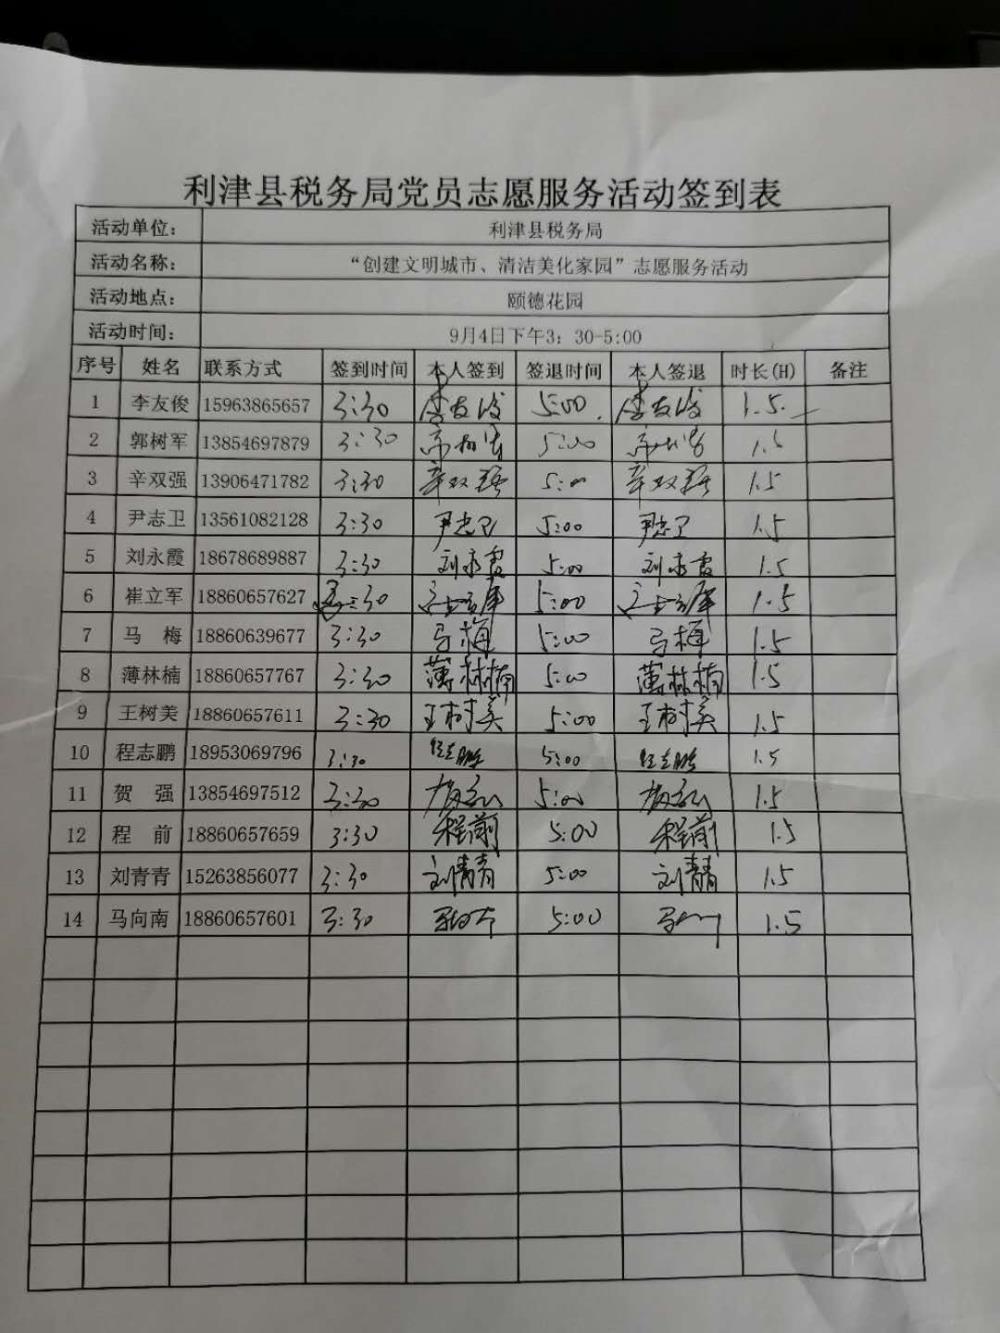 利津县税务局党员志愿服务活动签到表
活动单位： 利津县税务局
活动名称： “创建文明城市、清洁美化家园”志愿服务活动
活动地点： 颐德花园
活动时间： 9月4日下午3：30-5:00
序号 姓名 联系方式 签到时间 本人签到 签退时间 本人签退 时长(H) 备注
1 李友俊 15963865657 3:30 李友俊 5:00 李友俊 1.5
2 郭树军 13854697879 3:30 5:00 1.5
3 辛双强 13906471782 3:30 辛双强 5:00 辛双强 1.5
4 尹志卫 13561082128 3:30 尹志卫 5:00 尹志卫 1.5
5 刘永霞 18678689887 3:30 刘永霞 5:00 刘永霞 1.5
6 崔立军 18860657627 3:30 5:00 1.5
7 马 梅 18860639677 3:30 马梅 5:00 马梅 1.5
8 薄林楠 18860657767 3:30 薄林楠 5:00 薄林楠 1.5
9 王树美 18860657611 3:30 王树美 5:00 王树美 1.5
10 程志鹏 18953069796 3:30 程志鹏 5:00 程志鹏 1.5
11 贺 强 13854697512 3:30 5:00 1.5
12 程 前 18860657659 3:30 程前 5:00 程前 1.5
13 刘青青 15263856077 3:30 刘青青 5:00 刘青青 1.5
14 马向南 18860657601 3:30 马向南 5:00 1.5